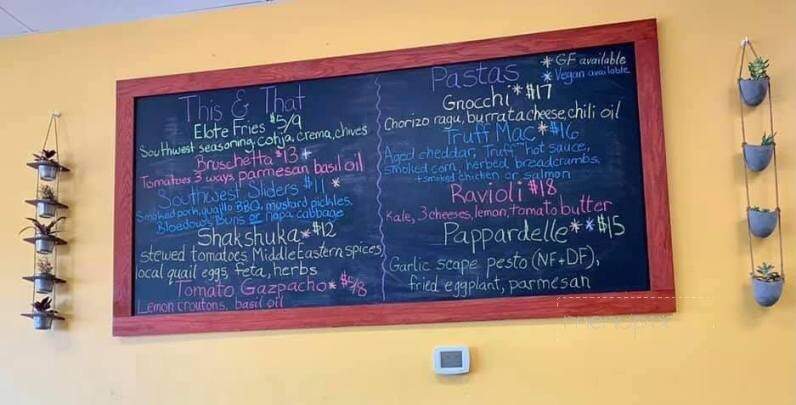 This & That
Elote Fries $5/9
Southwest seasoning, cotija, crema, chives
Bruschetta $13 *
Tomatoes 3 ways, parmesan basil oil
Southwest Sliders $11 *
Smoked pork, guajillo BBQ, mustard pickles,
Bloedow's Buns or napa cabbage
Shakshuka * $12
stewed tomatoes, Middle Eastern spices,
local quail eggs, feta, herbs
Tomato Gazpacho * $5/8
Lemon croutons, basil oil
Pastas
* GF available
* Vegan available
Gnocchi * $17
Chorizo ragu, burrata cheese, chili oil
Truff Mac * $16
Aged cheddar, Truff hot sauce,
smoked corn, herbed breadcrumbs,
+ smoked chicken or salmon
Ravioli $18
Kale, 3 cheeses, lemon, tomato butter
Pappardelle * * $15
Garlic scape pesto (NF+DF),
fried eggplant, parmesan
menupix